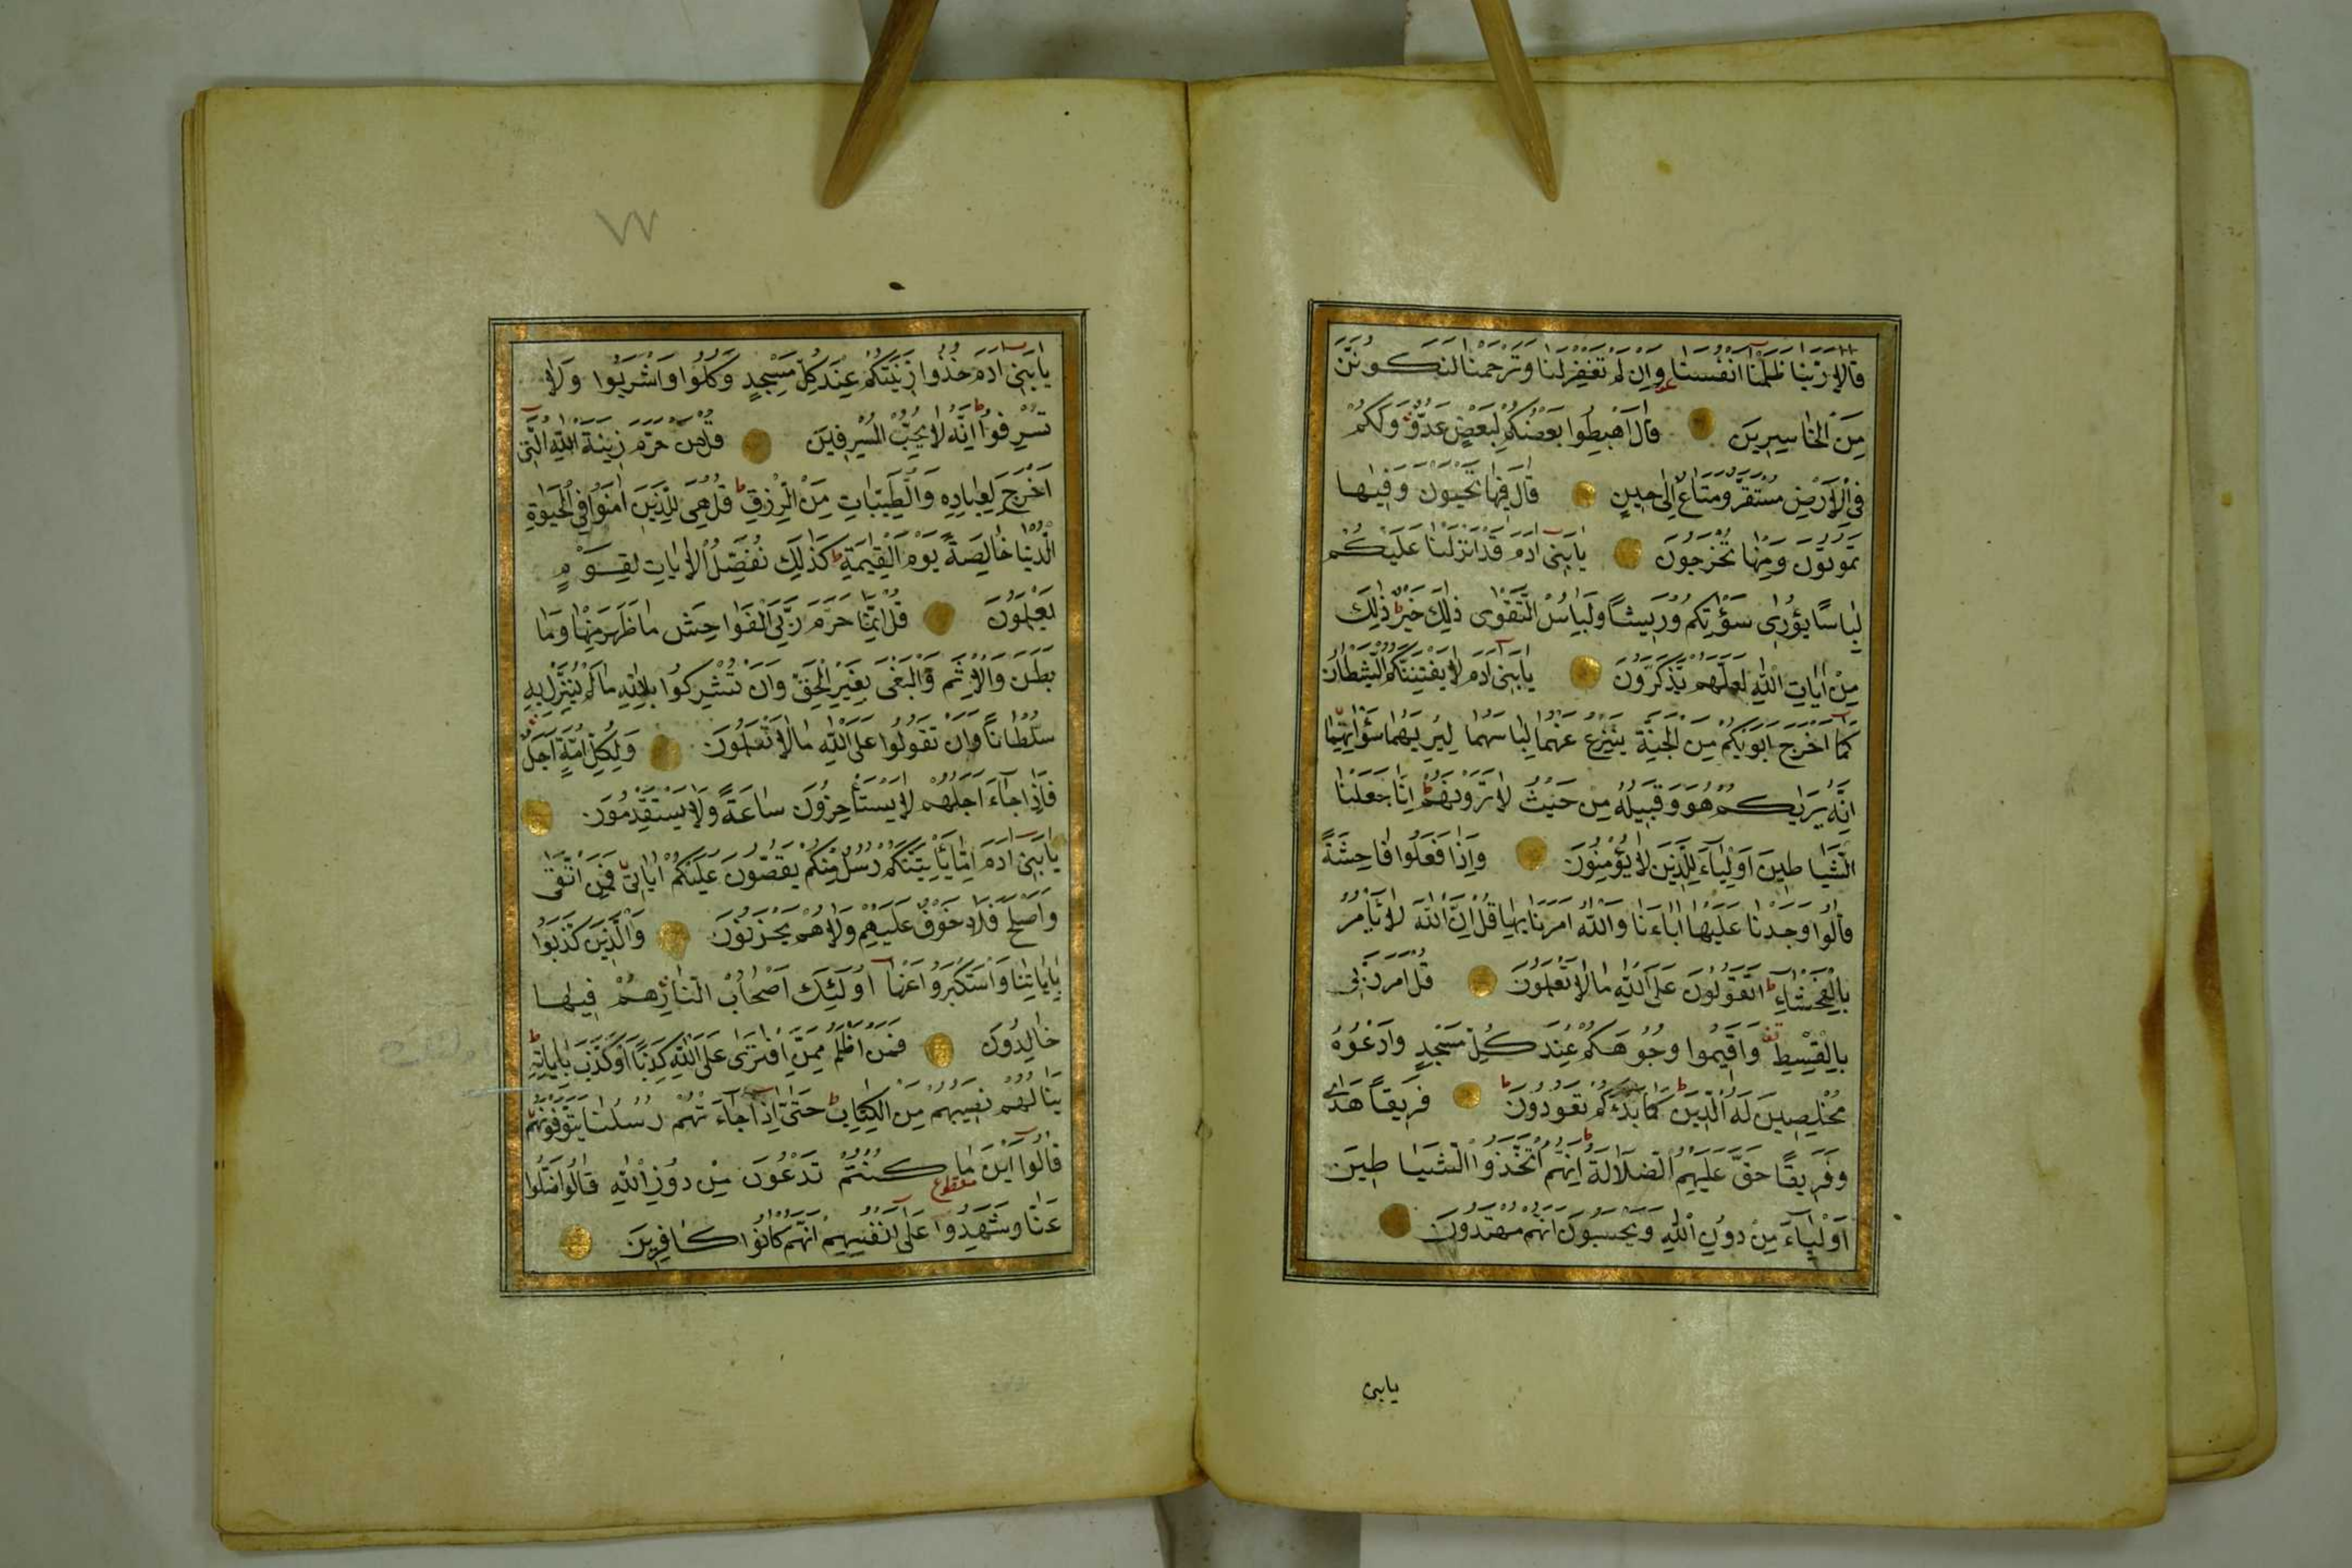 قَالَا رَبَّنَا ظَلَمْنَا اَنْفُسَنَا وَاِنْ لَمْ تَغْفِرْ لَنَا وَتَرْحَمْنَا لَنَكُونَنَّ
مِنَ الْخَاسِرِينَ قَالَ اهْبِطُوا بَعْضُكُمْ لِبَعْضٍ عَدُوٌّ وَلَكُمْ
فِى الْاَرْضِ مُسْتَقَرٌّ وَمَتَاعٌ اِلٰى حِينٍ قَالَ فِيهَا تَحْيَوْنَ وَفِيهَا
تَمُوتُونَ وَمِنْهَا تُخْرَجُونَ يَابَنِى اٰدَمَ قَدْ اَنْزَلْنَا عَلَيْكُمْ
لِبَاسًا يُوَارِى سَوْٰاتِكُمْ وَرِيشًا وَلِبَاسُ التَّقْوٰى ذٰلِكَ خَيْرٌ ذٰلِكَ
مِنْ اٰيَاتِ اللّٰهِ لَعَلَّهُمْ يَذَّكَّرُونَ يَابَنِى اٰدَمَ لَا يَفْتِنَنَّكُمُ الشَّيْطَانُ
كَمَا اَخْرَجَ اَبَوَيْكُمْ مِنَ الْجَنَّةِ يَنْزِعُ عَنْهُمَا لِبَاسَهُمَا لِيُرِيَهُمَا سَوْاٰتِهِمَا
اِنَّهُ يَرٰيكُمْ هُوَ وَقَبِيلُهُ مِنْ حَيْثُ لَا تَرَوْنَهُمْ اِنَّا جَعَلْنَا
الشَّيَاطِينَ اَوْلِيَاءَ لِلَّذِينَ لَا يُؤْمِنُونَ وَاِذَا فَعَلُوا فَاحِشَةً
قَالُوا وَجَدْنَا عَلَيْهَا اٰبَاءَنَا وَاللّٰهُ اَمَرَنَا بِهَا قُلْ اِنَّ اللّٰهَ لَا يَأْمُرُ
بِالْفَحْشَاءِ اَتَقُولُونَ عَلَى اللّٰهِ مَا لَا تَعْلَمُونَ قُلْ اَمَرَ رَبِّى
بِالْقِسْطِ وَاَقِيمُوا وُجُوهَكُمْ عِنْدَ كُلِّ مَسْجِدٍ وَادْعُوهُ
مُخْلِصِينَ لَهُ الدِّينَ كَمَا بَدَءَكُمْ تَعُودُونَ فَرِيقًا هَدٰى
وَفَرِيقًا حَقَّ عَلَيْهِمُ الضَّلَالَةُ اِنَّهُمُ اتَّخَذُوا الشَّيَاطِينَ
اَوْلِيَاءَ مِنْ دُونِ اللّٰهِ وَيَحْسَبُونَ اَنَّهُمْ مُهْتَدُونَ
يابنى
٧٧
يَابَنِى اٰدَمَ خُذُوا زِينَتَكُمْ عِنْدَ كُلِّ مَسْجِدٍ وَكُلُوا وَاشْرَبُوا وَلَا
تُسْرِفُوا اِنَّهُ لَا يُحِبُّ الْمُسْرِفِينَ قُلْ مَنْ حَرَّمَ زِينَةَ اللّٰهِ الَّتِى
اَخْرَجَ لِعِبَادِهِ وَالطَّيِّبَاتِ مِنَ الرِّزْقِ قُلْ هِىَ لِلَّذِينَ اٰمَنُوا فِى الْحَيٰوةِ
الدُّنْيَا خَالِصَةً يَوْمَ الْقِيٰمَةِ كَذٰلِكَ نُفَصِّلُ الْاٰيَاتِ لِقَوْمٍ
يَعْلَمُونَ قُلْ اِنَّمَا حَرَّمَ رَبِّىَ الْفَوَاحِشَ مَا ظَهَرَ مِنْهَا وَمَا
بَطَنَ وَالْاِثْمَ وَالْبَغْىَ بِغَيْرِ الْحَقِّ وَاَنْ تُشْرِكُوا بِاللّٰهِ مَا لَمْ يُنَزِّلْ بِهِ
سُلْطَانًا وَاَنْ تَقُولُوا عَلَى اللّٰهِ مَا لَا تَعْلَمُونَ وَلِكُلِّ اُمَّةٍ اَجَلٌ
فَاِذَا جَاءَ اَجَلُهُمْ لَا يَسْتَأْخِرُونَ سَاعَةً وَلَا يَسْتَقْدِمُونَ
يَابَنِى اٰدَمَ اِمَّا يَأْتِيَنَّكُمْ رُسُلٌ مِنْكُمْ يَقُصُّونَ عَلَيْكُمْ اٰيَاتِى فَمَنِ اتَّقٰى
وَاَصْلَحَ فَلَا خَوْفٌ عَلَيْهِمْ وَلَا هُمْ يَحْزَنُونَ وَالَّذِينَ كَذَّبُوا
بِاٰيَاتِنَا وَاسْتَكْبَرُوا عَنْهَا اُولٰئِكَ اَصْحَابُ النَّارِ هُمْ فِيهَا
خَالِدُونَ فَمَنْ اَظْلَمُ مِمَّنِ افْتَرٰى عَلَى اللّٰهِ كَذِبًا اَوْ كَذَّبَ بِاٰيَاتِهِ
يَنَالُهُمْ نَصِيبُهُمْ مِنَ الْكِتَابِ حَتّٰى اِذَا جَاءَتْهُمْ رُسُلُنَا يَتَوَفَّوْنَهُمْ
قَالُوا اَيْنَ مَا كُنْتُمْ تَدْعُونَ مِنْ دُونِ اللّٰهِ قَالُوا ضَلُّوا
عَنَّا وَشَهِدُوا عَلٰى اَنْفُسِهِمْ اَنَّهُمْ كَانُوا كَافِرِينَ